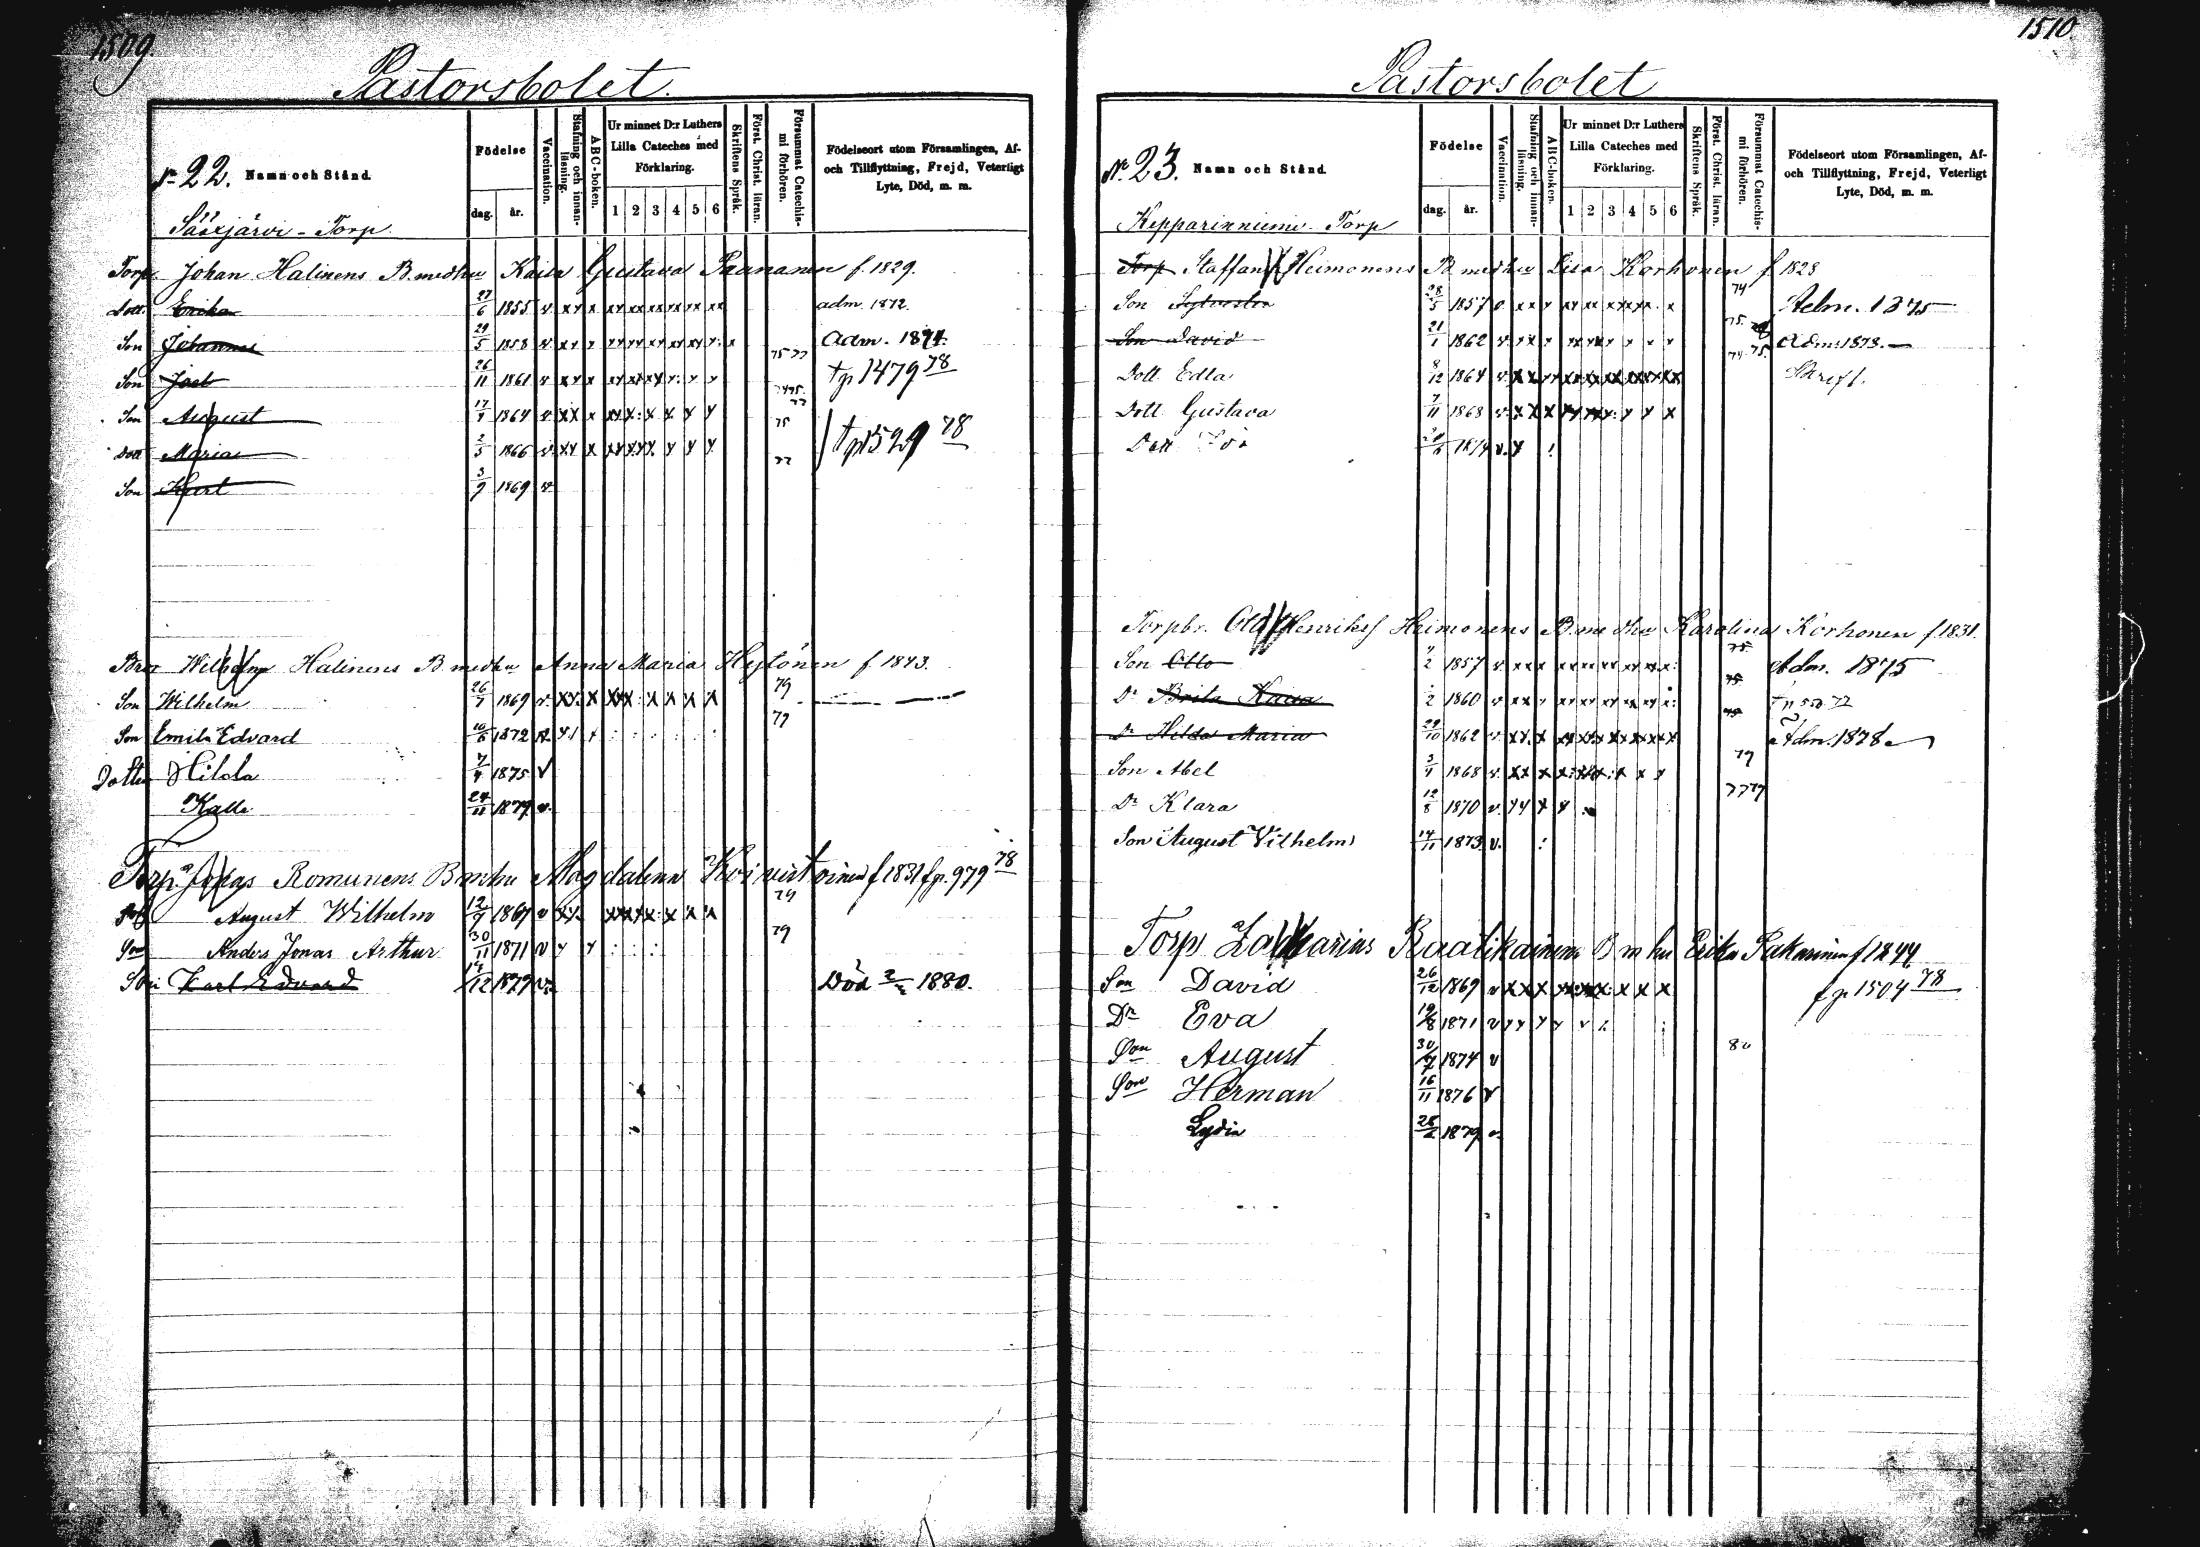 1509.
Pastorsbolet.
No 22. Namn och Stånd.
Födelse
dag. år.
Vaccination.
Stafning och innanläsning.
ABC-boken.
Ur minnet D:r Luthers Lilla Cateches med Förklaring.
1 2 3 4 5 6
Skriftens Språk.
Först. Christ. läran.
Försummat Catechismi förhören.
Födelseort utom Församlingen, Af- och Tillflyttning, Frejd, Veterligt Lyte, Död, m. m.
Torp.
Torp. Johan Halinens B. medhu Kaisa Gustava Paananen f. 1829.
Dott. Erika 27/6 1855 v adm. 1872.
Son Johannes 29/5 1858 v 75 77 Adm. 1874.
Son Joel 26/11 1861 v tp 1479 78
Son August 1864 v 75
Dott Maria 1866 v 77 tp 1529 78
Son 3/9 1869 v
Bror Wilhelm Halinens B medhu Anna Maria Hytönen f. 1843.
Son Wilhelm 26/7 1869 v 79
Son Emil Edvard 1872 79
Dotter Hilda 7/4 1875 v
Kalle 24/11 1879 v.
Torp. Jonas Romunens B mhu Magdalena f 1831 fp. 979 78
August Wilhelm 12/9 1867 v 79
Son Anders Jonas Arthur 30/11 1871 v 79
Son Karl Edvard 14/12 1879 v. Död 1880.
1510.
Pastorsbolet
No 23. Namn och Stånd
Födelse
dag. år.
Vaccination.
Stafning och innanläsning.
ABC-boken.
Ur minnet D:r Luthers Lilla Cateches med Förklaring.
1 2 3 4 5 6
Skriftens Språk.
Först. Christ. läran.
Försummat Catechismi förhören.
Födelseort utom Församlingen, Af- och Tillflyttning, Frejd, Veterligt Lyte, Död, m. m.
Kepparinniemi Torp
Torp Staffan Heimonens B medhu Lisa Korhonen f 1828
Son Sylvester 28/5 1857 74 Adm. 1875
Son David 21/1 1862 v 75. Adm. 1878.
Dott Edla 8/12 1864 v 74 75. Skrift.
Dott Gustava 7/11 1868 v
Torpbr. Henrikss Heimonens B medhu Karolina Korhonen f. 1831.
Son Otto 1857 v 75 Adm. 1875
Dr Brita Kaisa 1860 v 75
Dr Hilda Maria 29/10 1862 v Adm. 1878
Son Abel 1868 v. 79
Dr Klara 12/8 1870 v. 77 79
Son August Vilhelm 14/11 1873 v.
Torp Zakarias Raatikainens B m hu Erika Pakarinen f 1844
Son David 26/12 1869 v fp 1504 78
Dr Eva 1871 v
Son August 30/7 1874 v 80
Son Herman 16/11 1876 v
Lydia 1879 v.